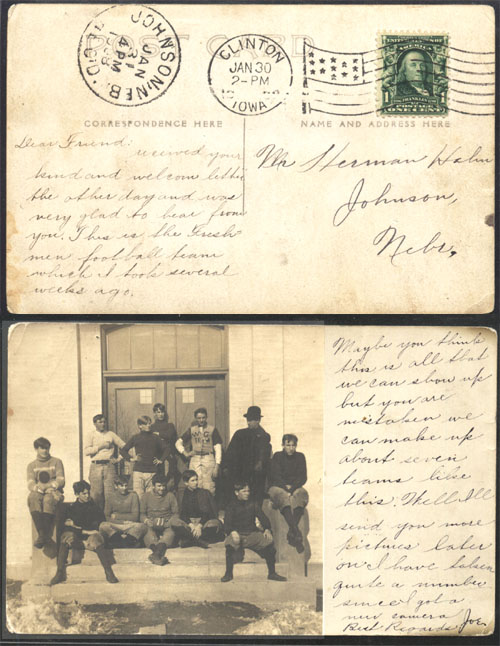 POST CARD
JOHNSON, NEB.
JAN
31
4 PM
1908
REC'D.
CLINTON
JAN 30
2-PM
IOWA
CORRESPONDENCE HERE
NAME AND ADDRESS HERE
Dear Friend:
recieved your
kind and welcome letter
the other day and was
very glad to hear from
you. This is the Fresh
men football team
which I took several
weeks ago.
Mr Herman Hahn
Johnson,
Nebr.
Maybe you think
this is all that
we can show up
but you are
mistaken we
can make up
about seven
teams like
this. Well I'll
send you more
pictures later
on I have taken
quite a number
since I got a
new camera
Best Regards Joe.